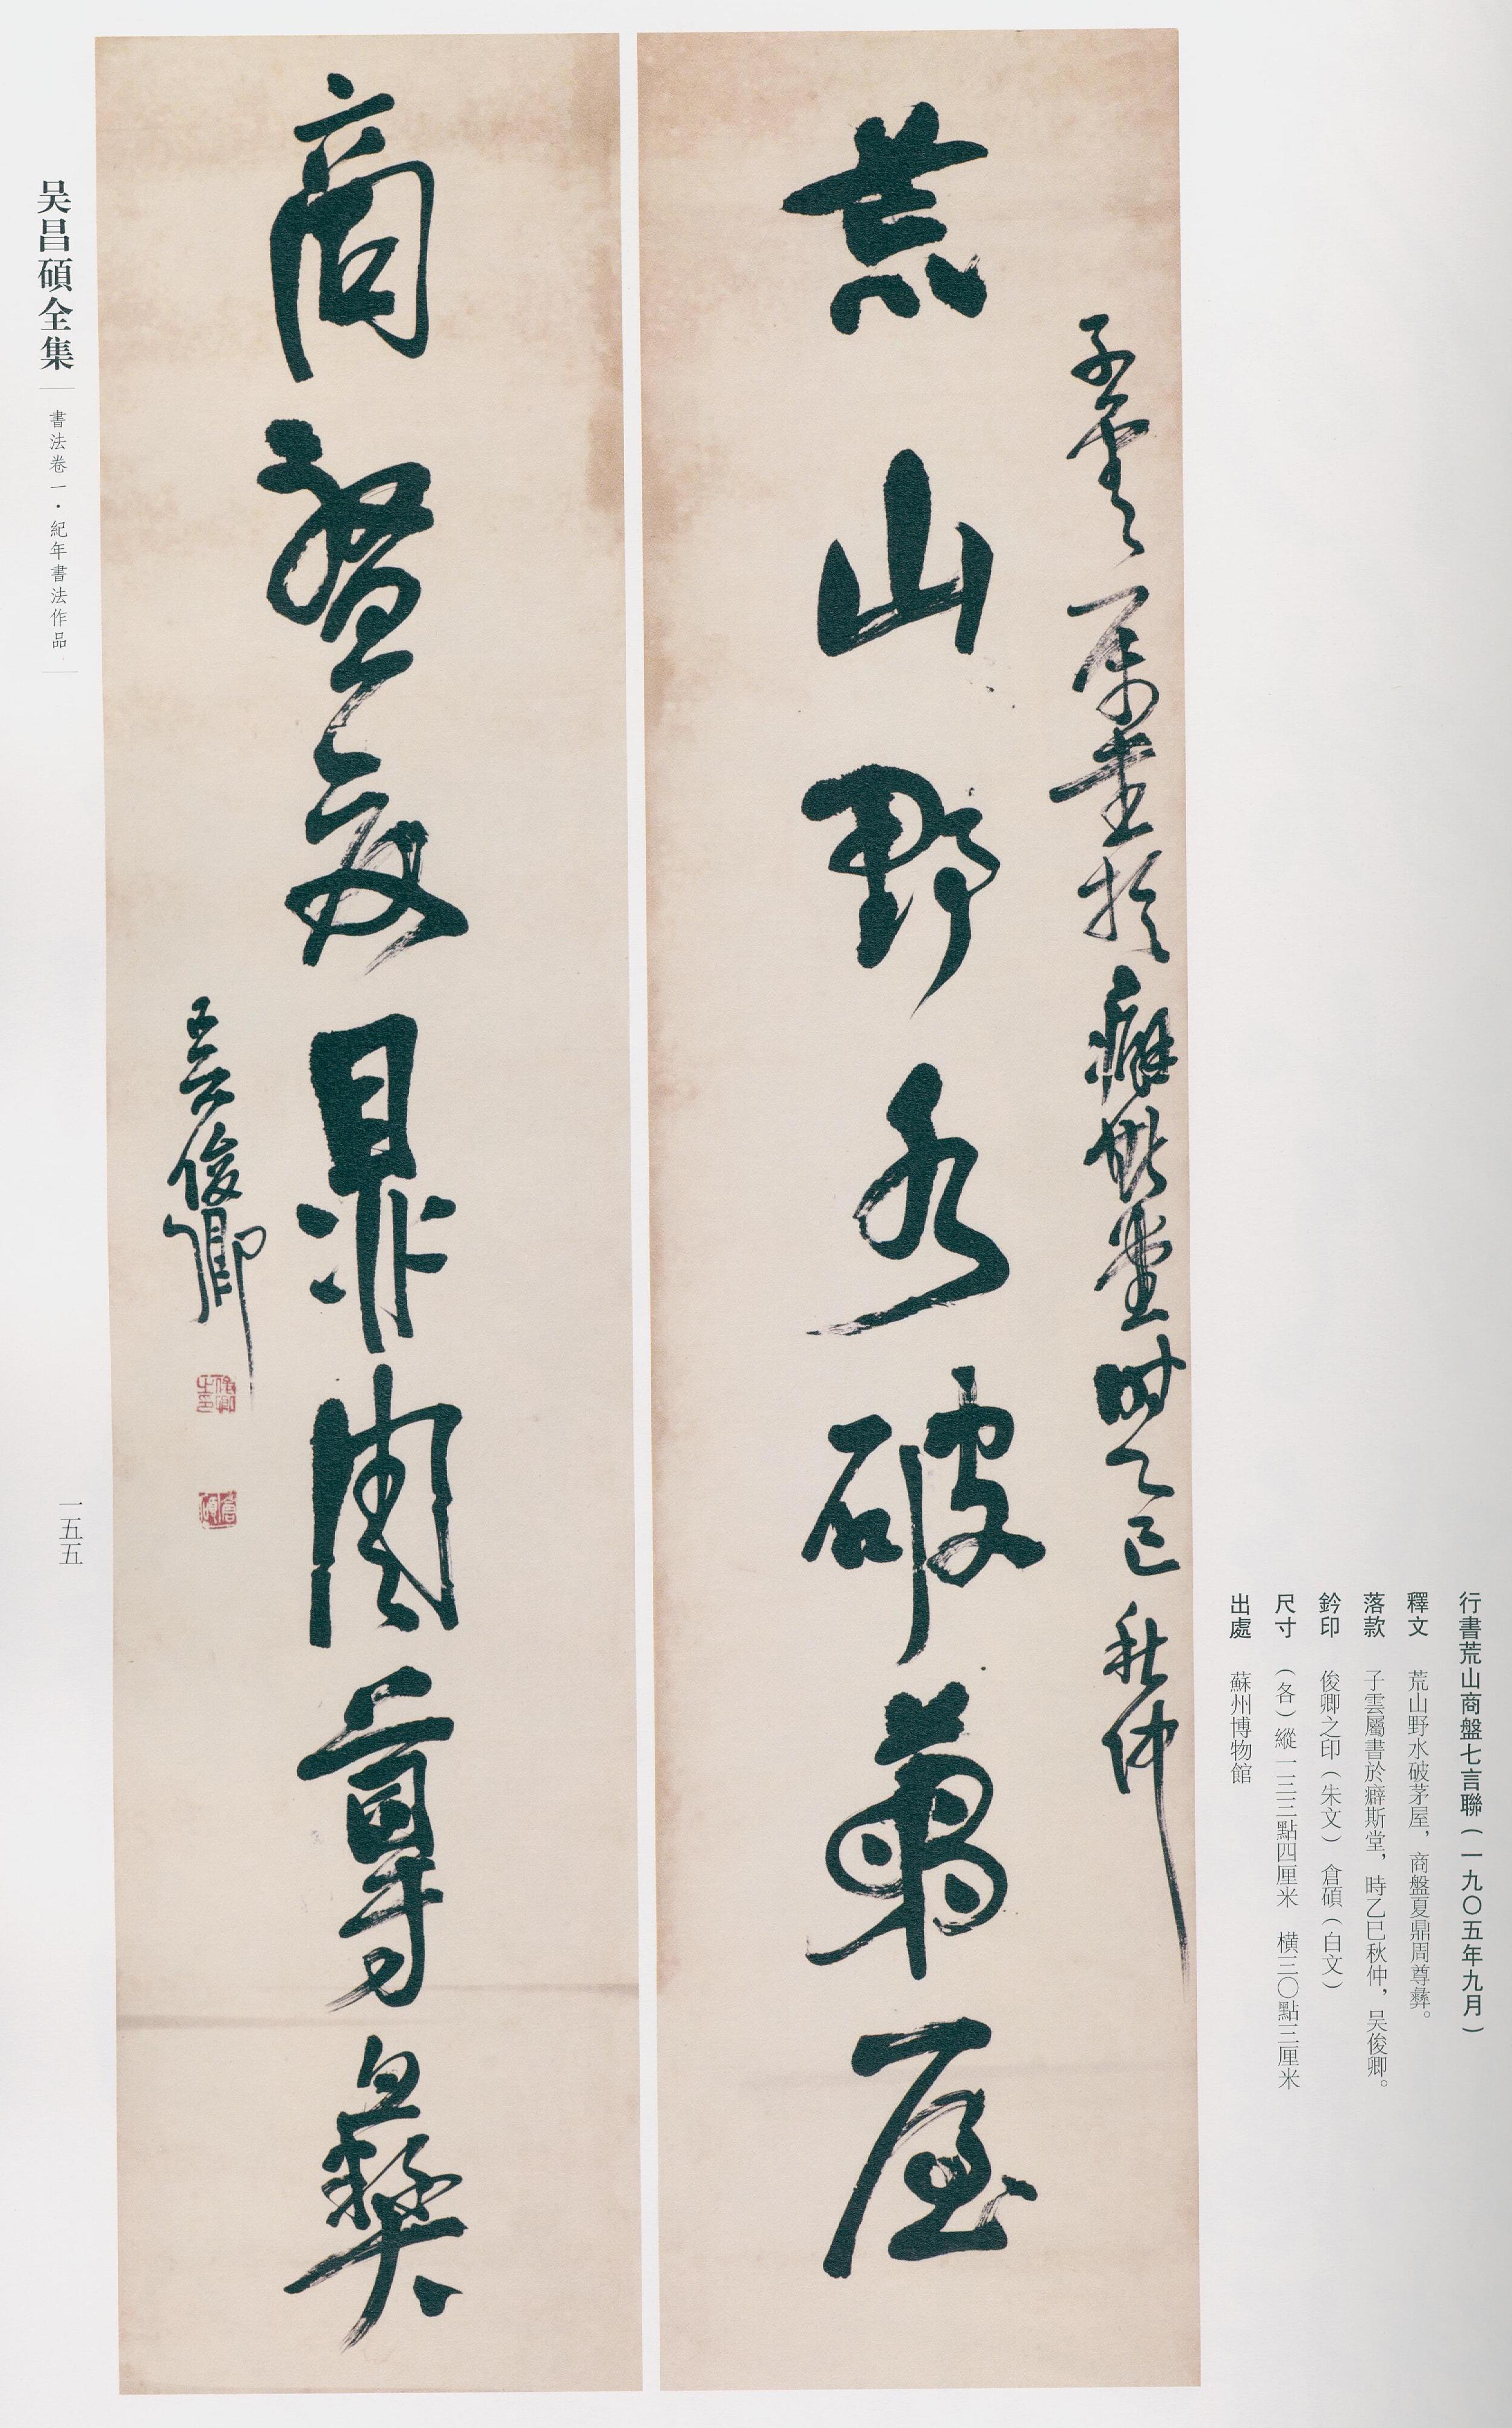 荒山野水破茅屋
子雲屬書於癖斯堂時乙巳秋仲
商盤夏鼎周尊彝
吳俊卿
俊卿之印
倉碩
行書荒山商盤七言聯（一九〇五年九月）
釋文　荒山野水破茅屋，商盤夏鼎周尊彝。
落款　子雲屬書於癖斯堂，時乙巳秋仲，吴俊卿。
鈐印　俊卿之印（朱文）　倉碩（白文）
尺寸　（各）縱一三三點四厘米　橫三〇點三厘米
出處　蘇州博物館
吴昌碩全集
書法卷一·紀年書法作品
一五五